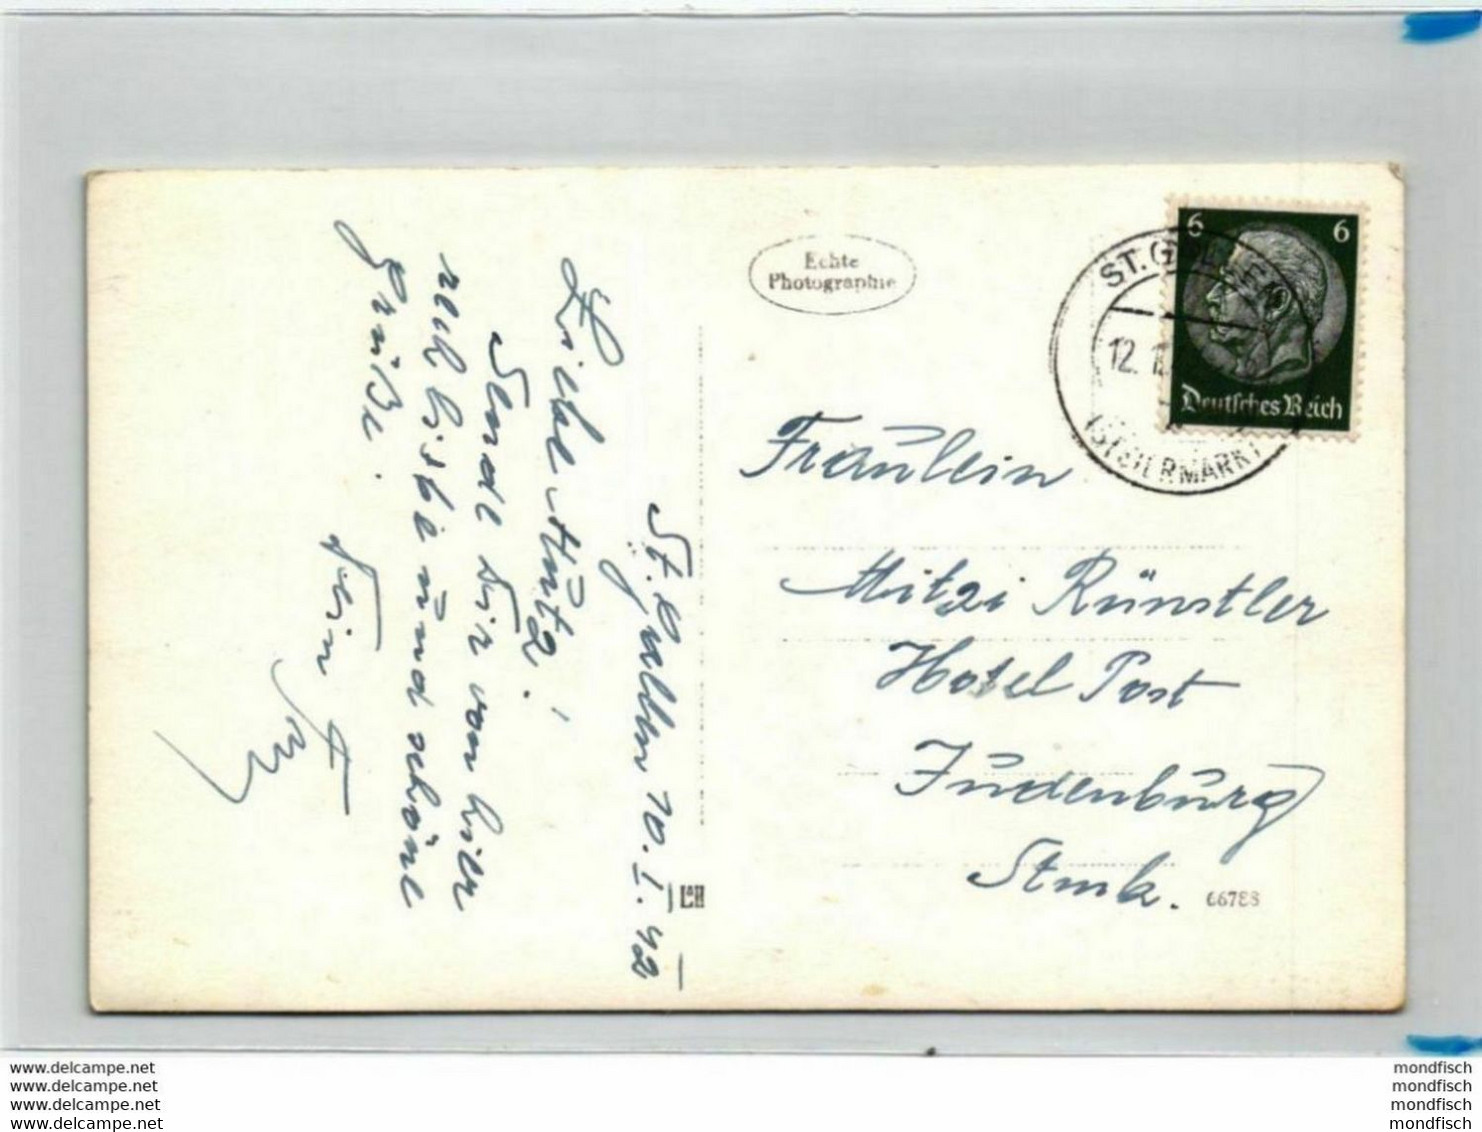 St. Gallen 10. I. 42
Liebe Mitzi!
Sende Dir von hier
recht liebe und schöne
Grüße.
Dein
Echte
Photographie
6 6
Deutsches Reich
ST. GALLEN
12. 1.
(STEIERMARK)
Fräulein
Mitzi Künstler
Hotel Post
Judenburg
Stmk.
66788
www.delcampe.net
www.delcampe.net
www.delcampe.net
www.delcampe.net
mondfisch
mondfisch
mondfisch
mondfisch